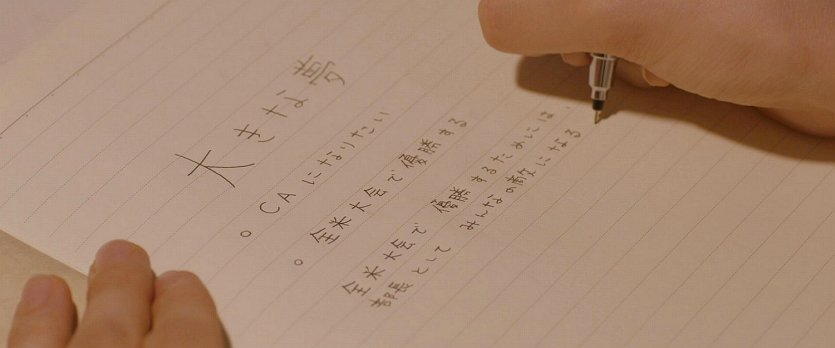 大きな夢
。CAになりたい
。全米大会で優勝する
全米大会で優勝するためには、
部長としてみんなの敵になる